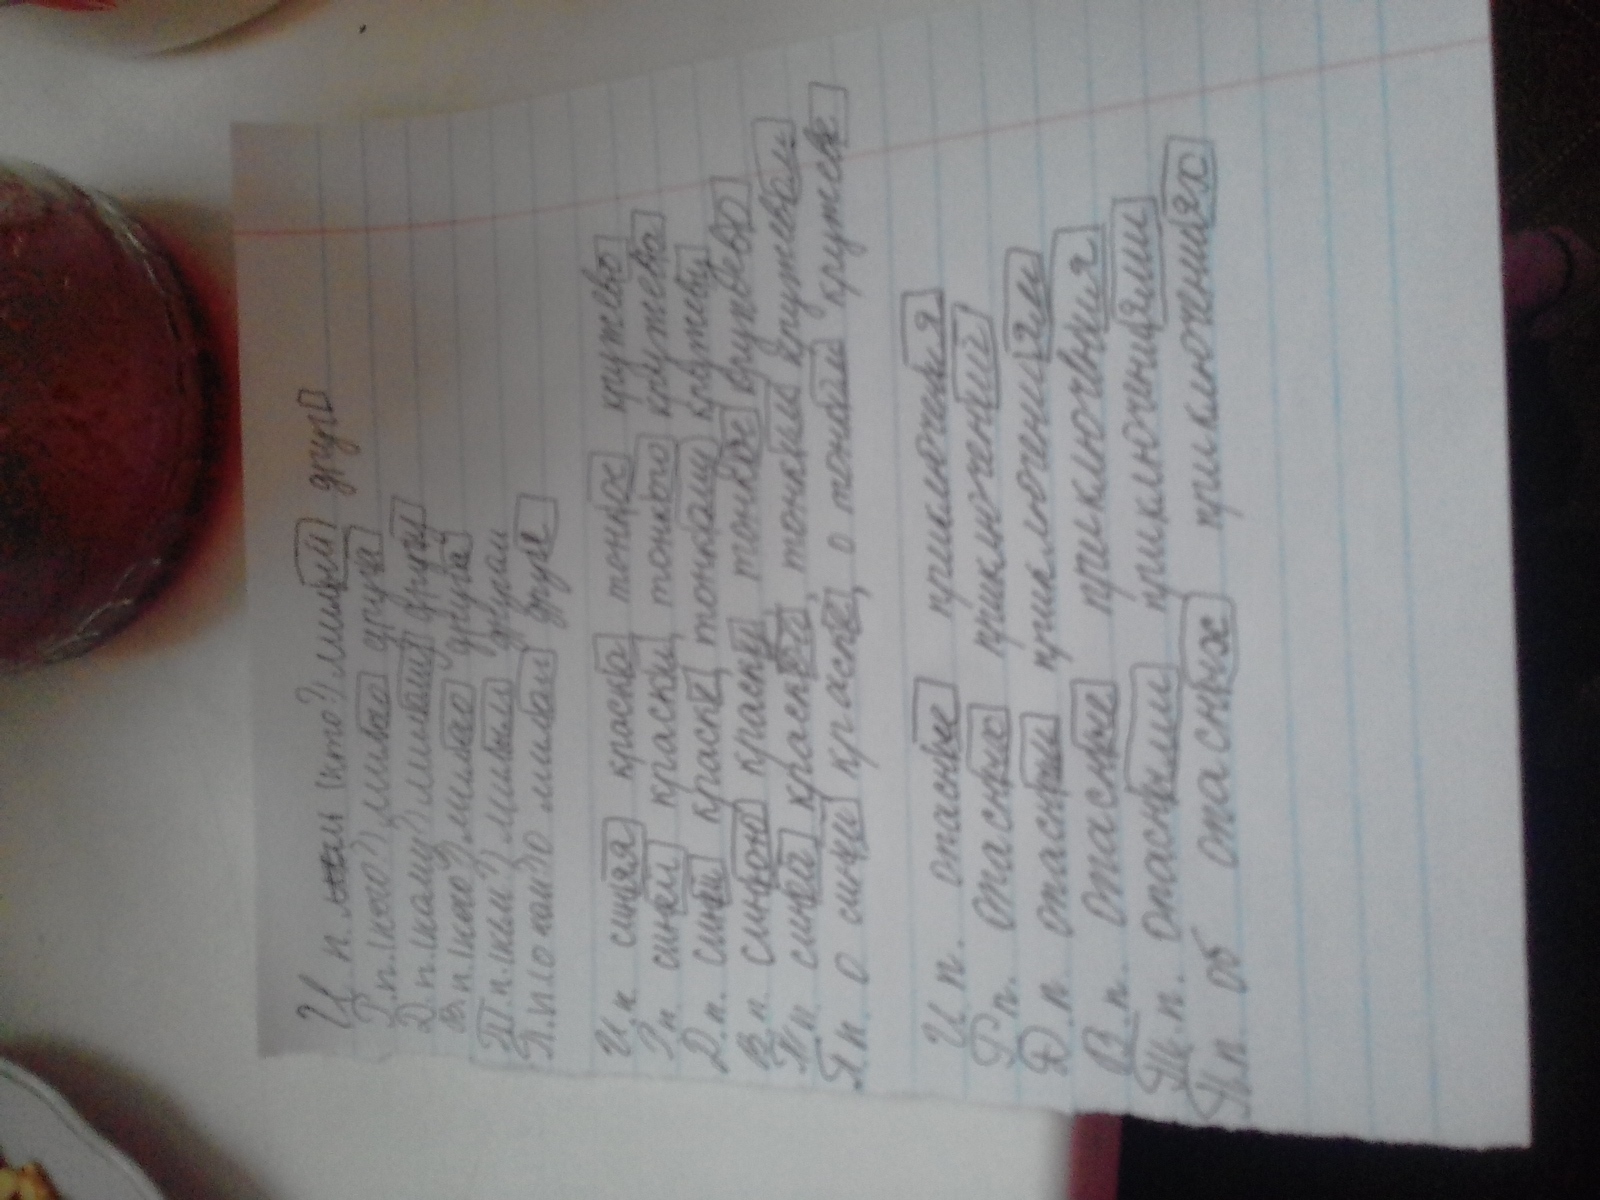 И п. (кто?) милый друг
Р.п. (кого?) милого друга
Д.п. (кому?) милому другу
В.п. (кого?) милого друга
Т.п. (кем?) милым другом
П.п. (о ком?) о милом друге
И.п. синяя краска тонкое кружево
Р.п. синей краски тонкого кружева
Д.п. синей краске, тонкому кружеву
В.п. синюю краску тонкое кружево
Т.п. синей краской, тонким кружевом
П.п. о синей краске, о тонком кружеве
И.п. опасные приключения
Р.п. опасных приключений
Д.п. опасным приключениям
В.п. опасные приключения
Тв.п. опасными приключениями
П.п. об опасных приключениях